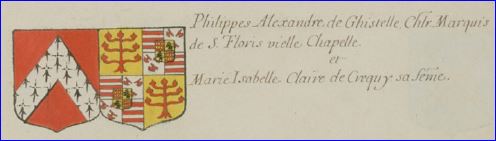 Philippes Alexandre de Ghistelle, Chlr. Marquis
de S. Floris vielle Chapelle.
et
Marie Isabelle Claire de Crequy sa féme.